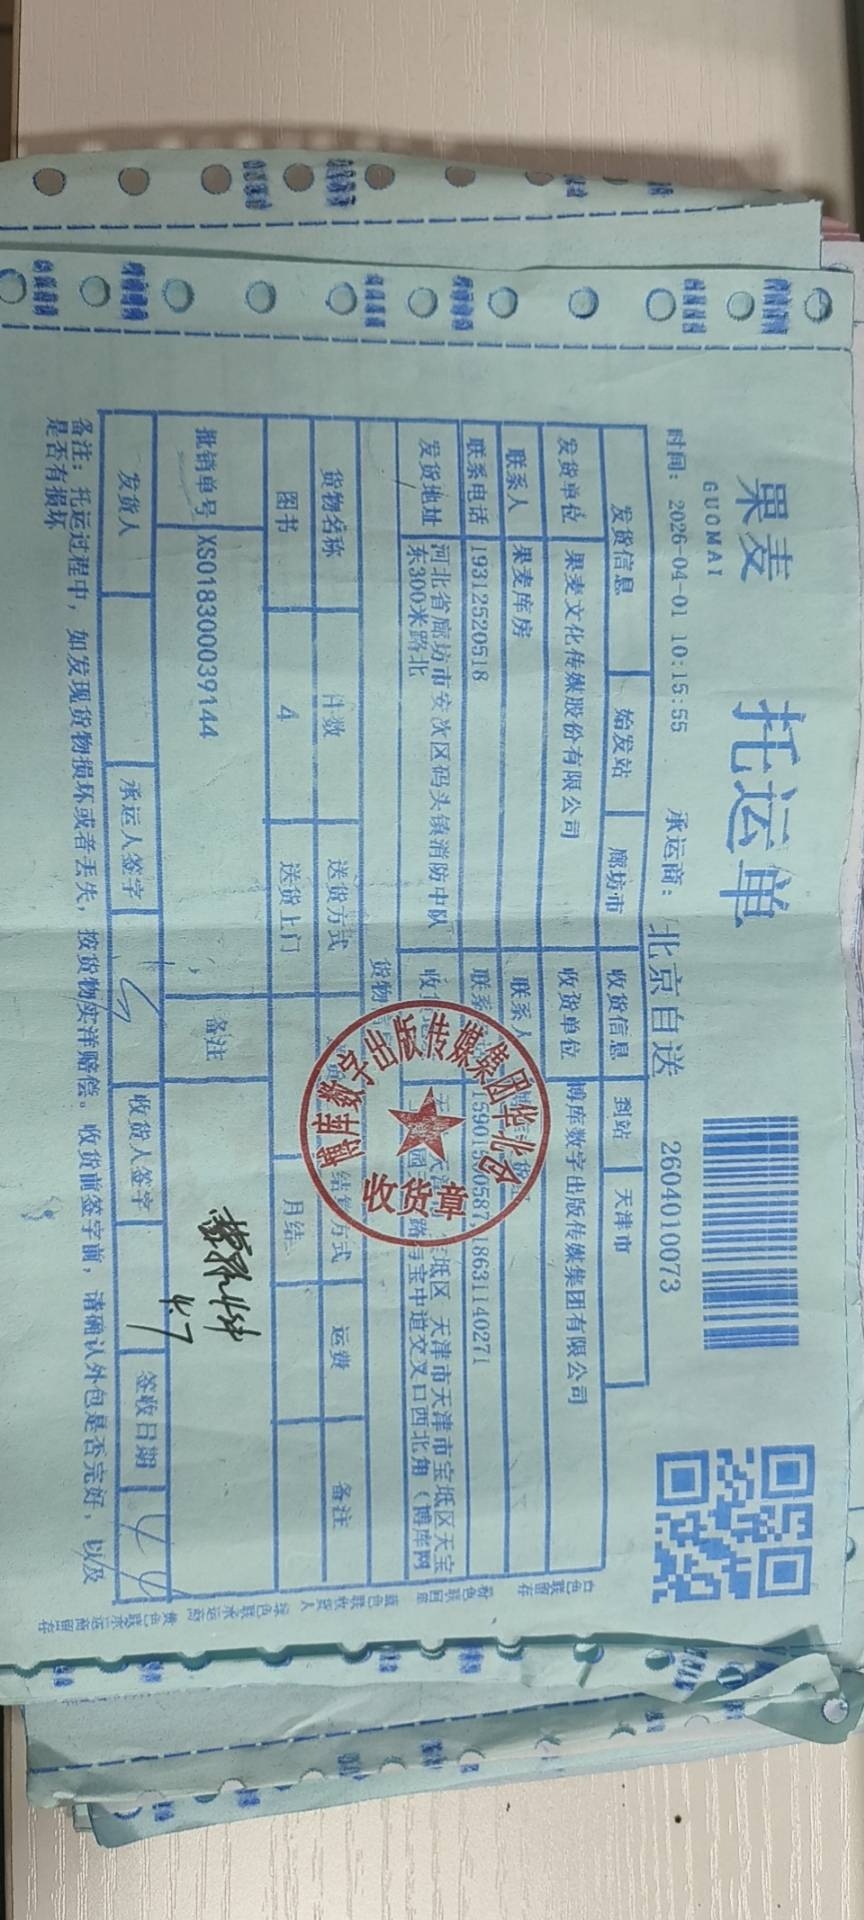 果麦
GUOMAI
托运单
2604010073
时间: 2026-04-01 10:15:55 承运商: 北京自送
发货信息 始发站 廊坊市 收货信息 到站 天津市
发货单位 果麦文化传媒股份有限公司 收货单位 博库数字出版传媒集团有限公司
联系人 果麦库房 联系人
联系电话 19312520518 联系 18631140271
发货地址 河北省廊坊市安次区码头镇消防中队东300米路北 收 坻区 天津市天津市宝坻区天宝
路与宝中道交叉口西北角(博库网
货物
货物名称 件数 送货方式 结算方式 运费 备注
图书 4 送货上门 月结
批销单号 XS018300039144 备注
4.7
发货人 承运人签字 收货人签字 签收日期
备注: 托运过程中, 如发现货物损坏或者丢失, 按货物实洋赔偿。收货前签字前, 请确认外包是否完好, 以及
是否有损坏
白色联留存 粉色联回单 蓝色联收货人 绿色联承运商 黄色联承运商留存
博库数字出版传媒集团华北仓
收货章